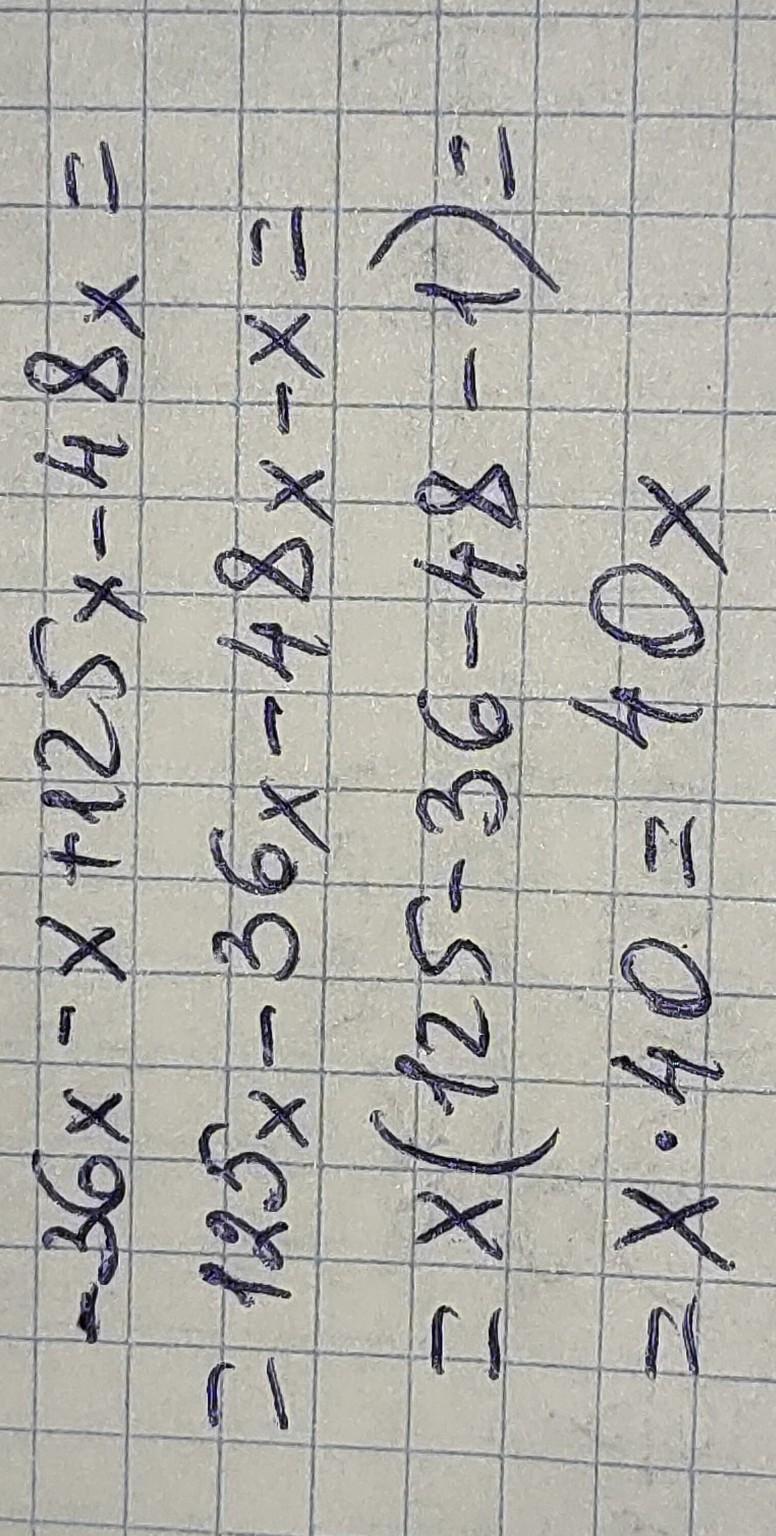 -36x - x + 125x - 48x =
= 125x - 36x - 48x - x =
= x(125 - 36 - 48 - 1) =
= x · 40 = 40x